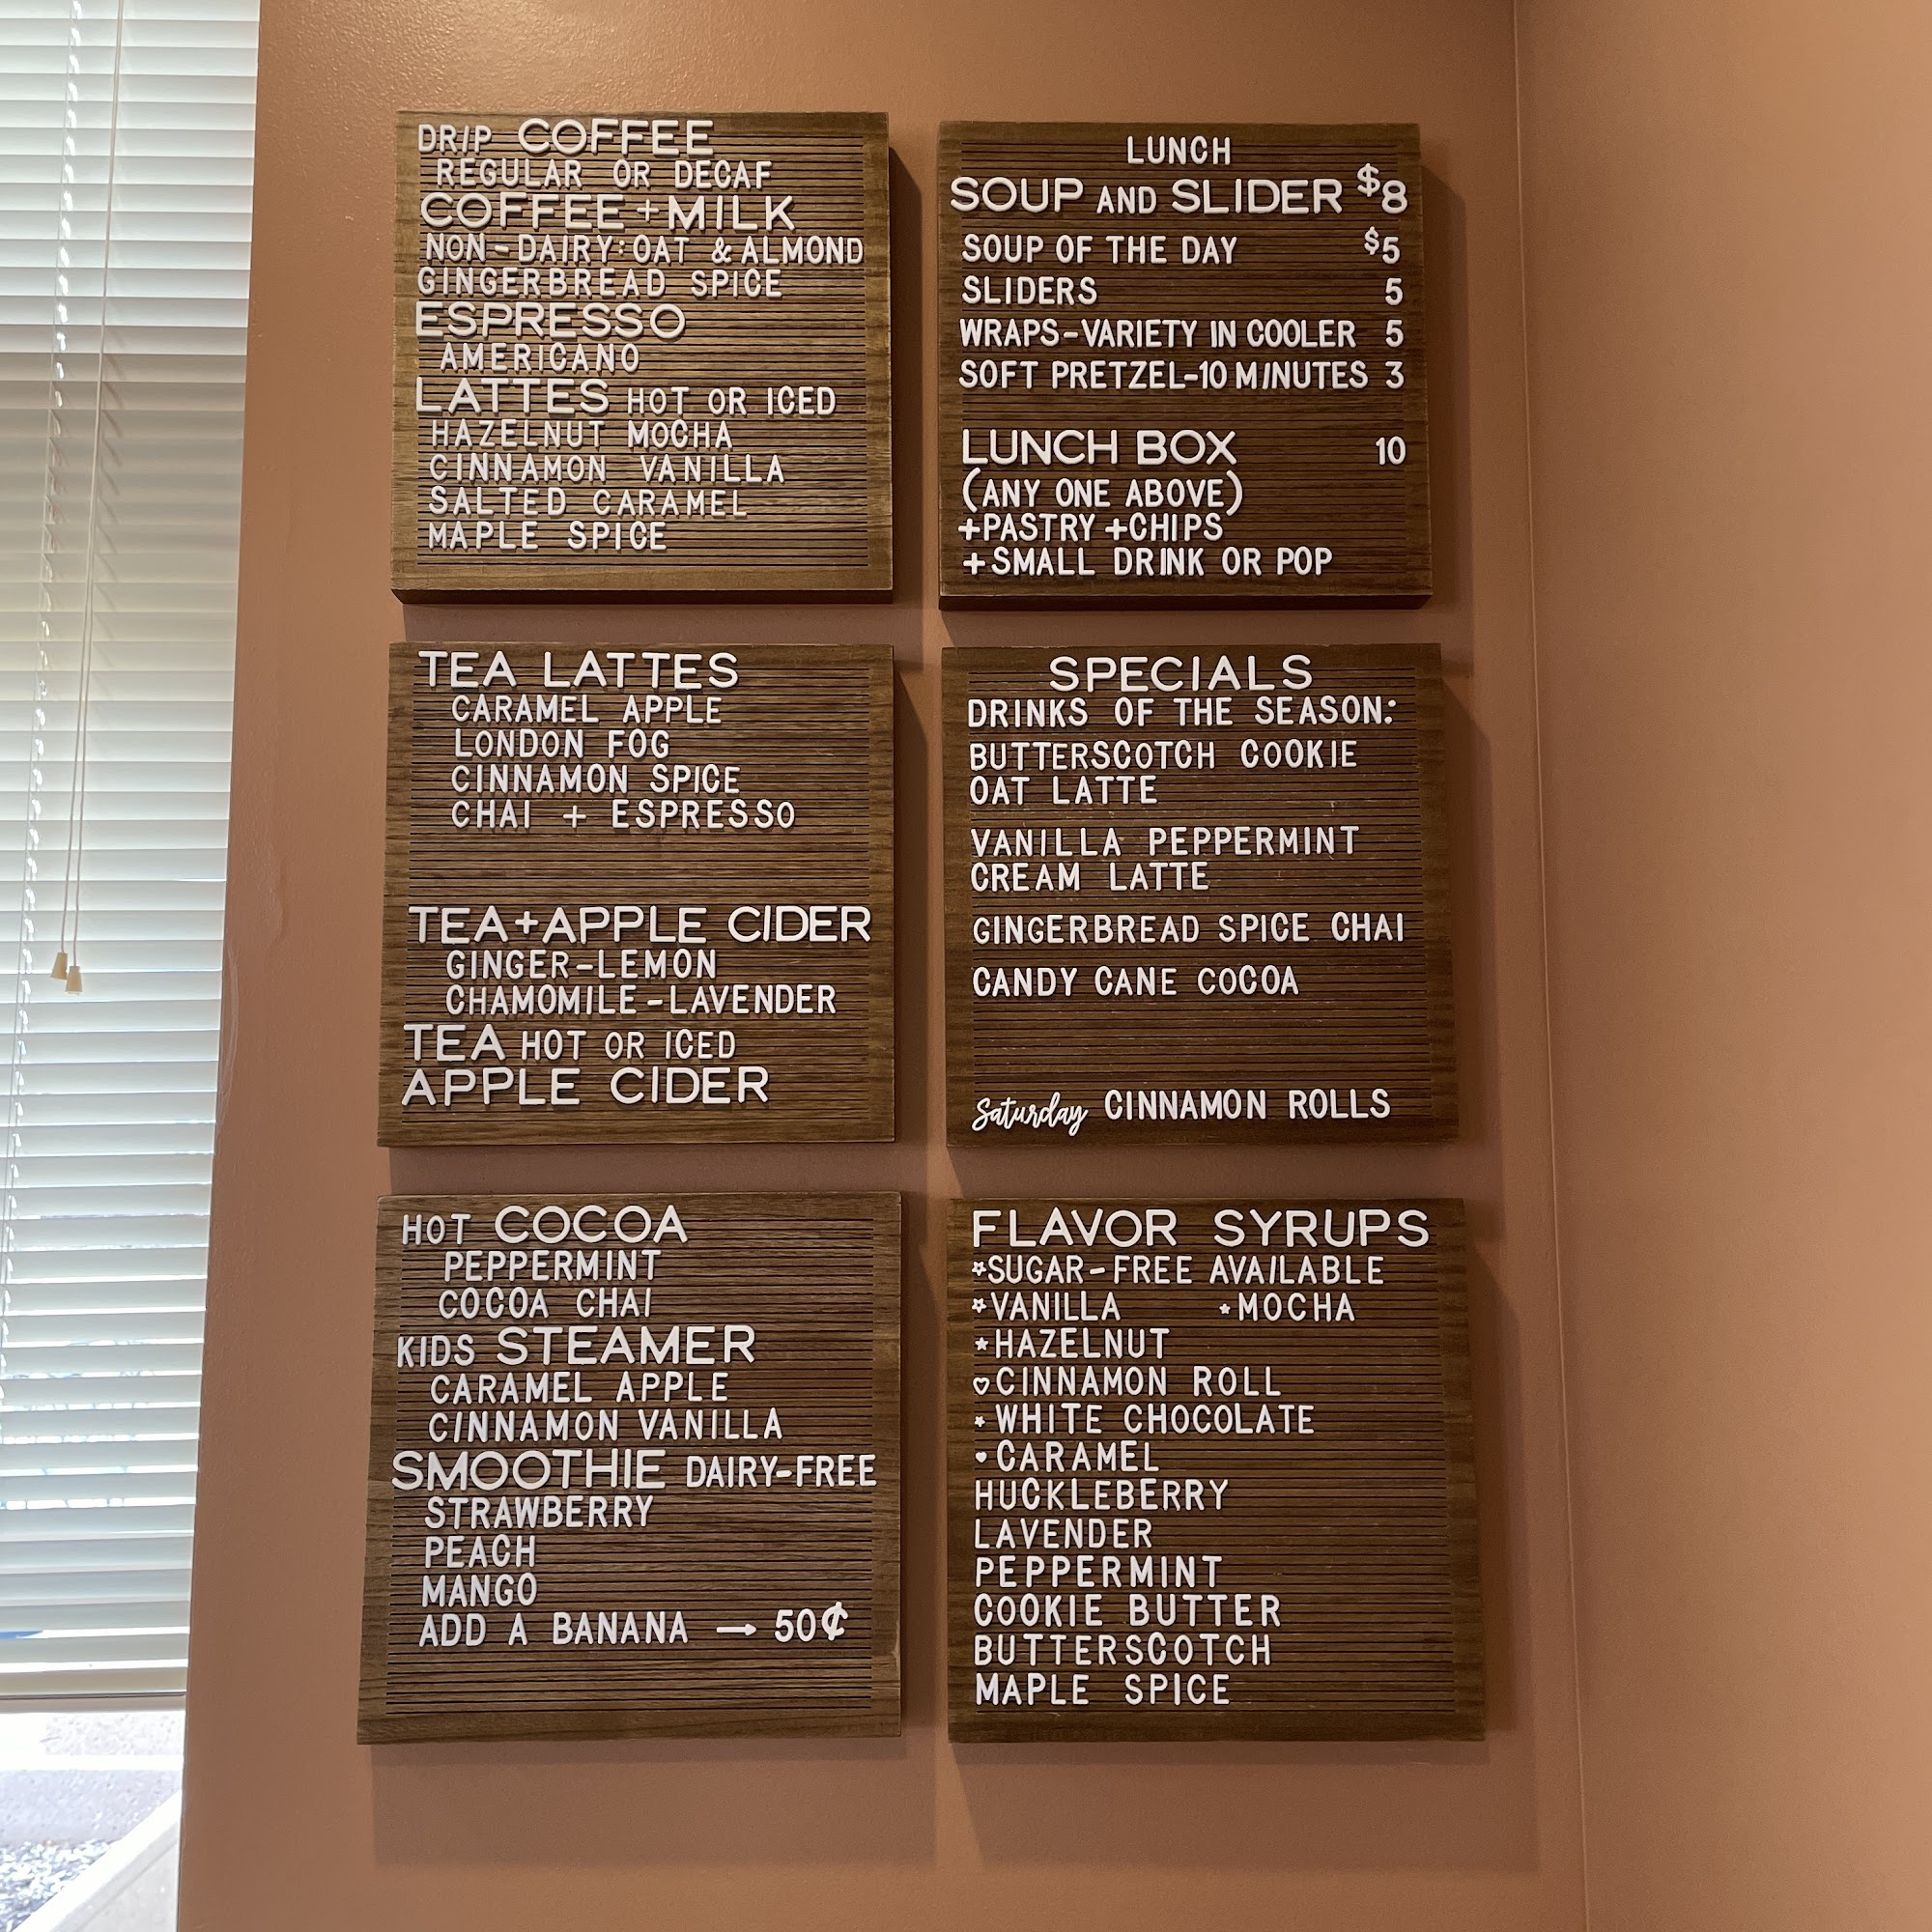 DRIP COFFEE
REGULAR OR DECAF
COFFEE + MILK
NON-DAIRY: OAT & ALMOND
GINGERBREAD SPICE
ESPRESSO
AMERICANO
LATTES HOT OR ICED
HAZELNUT MOCHA
CINNAMON VANILLA
SALTED CARAMEL
MAPLE SPICE
LUNCH
SOUP AND SLIDER $8
SOUP OF THE DAY $5
SLIDERS 5
WRAPS-VARIETY IN COOLER 5
SOFT PRETZEL-10 MINUTES 3
LUNCH BOX 10
(ANY ONE ABOVE)
+PASTRY +CHIPS
+SMALL DRINK OR POP
TEA LATTES
CARAMEL APPLE
LONDON FOG
CINNAMON SPICE
CHAI + ESPRESSO
TEA+APPLE CIDER
GINGER-LEMON
CHAMOMILE-LAVENDER
TEA HOT OR ICED
APPLE CIDER
SPECIALS
DRINKS OF THE SEASON:
BUTTERSCOTCH COOKIE
OAT LATTE
VANILLA PEPPERMINT
CREAM LATTE
GINGERBREAD SPICE CHAI
CANDY CANE COCOA
Saturday CINNAMON ROLLS
HOT COCOA
PEPPERMINT
COCOA CHAI
KIDS STEAMER
CARAMEL APPLE
CINNAMON VANILLA
SMOOTHIE DAIRY-FREE
STRAWBERRY
PEACH
MANGO
ADD A BANANA → 50¢
FLAVOR SYRUPS
☆SUGAR-FREE AVAILABLE
☆VANILLA ★MOCHA
★HAZELNUT
♡CINNAMON ROLL
★WHITE CHOCOLATE
♥CARAMEL
HUCKLEBERRY
LAVENDER
PEPPERMINT
COOKIE BUTTER
BUTTERSCOTCH
MAPLE SPICE